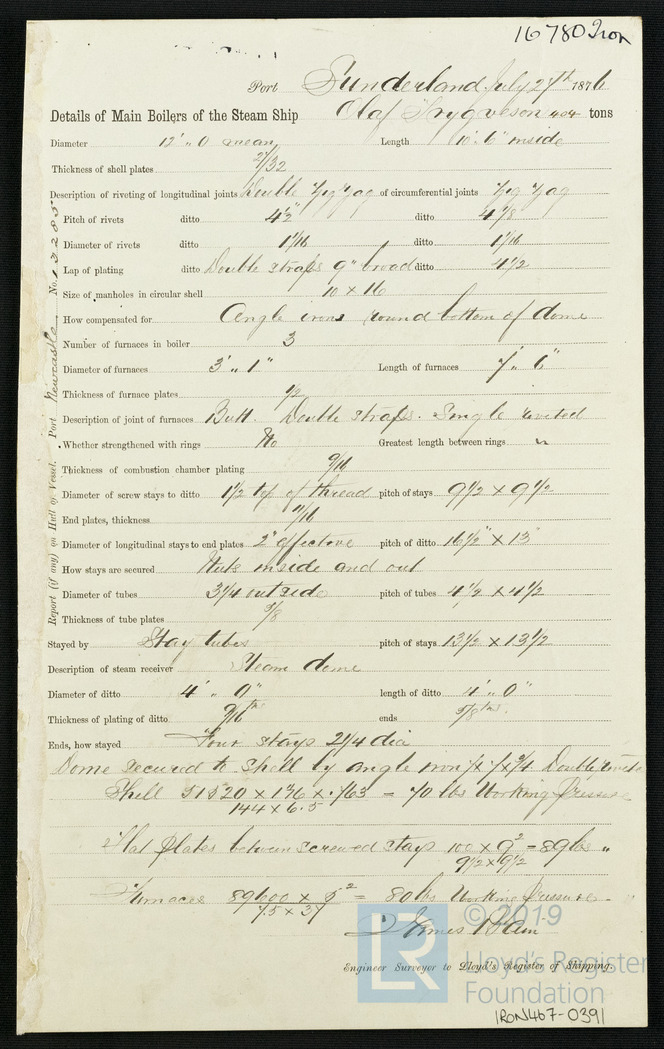 16780 Iron
Port Sunderland July 27th 1876
Details of Main Boilers of the Steam Ship Olaf Trygveson 404 tons
Diameter 12' " 0 mean Length 10' 6" inside
Thickness of shell plates 27/32
Description of riveting of longitudinal joints Double Zig Zag of circumferential joints Zig Zag
Pitch of rivets ditto 4 1/2" ditto 4 1/8
Diameter of rivets ditto 1 1/16 ditto 1 1/16
Lap of plating ditto Double straps 9" broad ditto 4 1/2
Size of manholes in circular shell 10 x 16
How compensated for Angle irons round bottom of dome
Number of furnaces in boiler 3
Diameter of furnaces 3' " 1" Length of furnaces 7' " 6"
Thickness of furnace plates 1/2
Description of joint of furnaces Butt. Double straps. Single riveted
Whether strengthened with rings No Greatest length between rings "
Thickness of combustion chamber plating 9/16
Diameter of screw stays to ditto 1 1/2 top of thread pitch of stays 9 1/2 x 9 1/2
End plates, thickness 11/16
Diameter of longitudinal stays to end plates 2" effective pitch of ditto 16 1/2" x 13"
How stays are secured Nuts inside and out
Diameter of tubes 3 1/4 outside pitch of tubes 4 1/2 x 4 1/2
Thickness of tube plates 5/8
Stayed by Stay tubes pitch of stays 13 1/2 x 13 1/2
Description of steam receiver Steam dome
Diameter of ditto 4' " 0" length of ditto 4' " 0"
Thickness of plating of ditto 9/16ths ends 5/8ths
Ends, how stayed Four stays 2 1/4 dia
Dome secured to shell by angle iron Double
Shell 51520 x 1 3/16 x .763 = 70 lbs Working Pressure
144 x 6.5
Flat Plates between screwed stays 100 x 9² = 89 lbs "
9 1/2 x 9 1/2
Furnaces 89600 x 5² = 80 lbs Working Pressure "
7.5 x 37
James Bain
Engineer Surveyor to Lloyd's Register of Shipping.
Report (if any) on Hull or Vessel. Port Newcastle No. 13285
© 2019
LR Lloyd's Register
Foundation
IRON467-0391